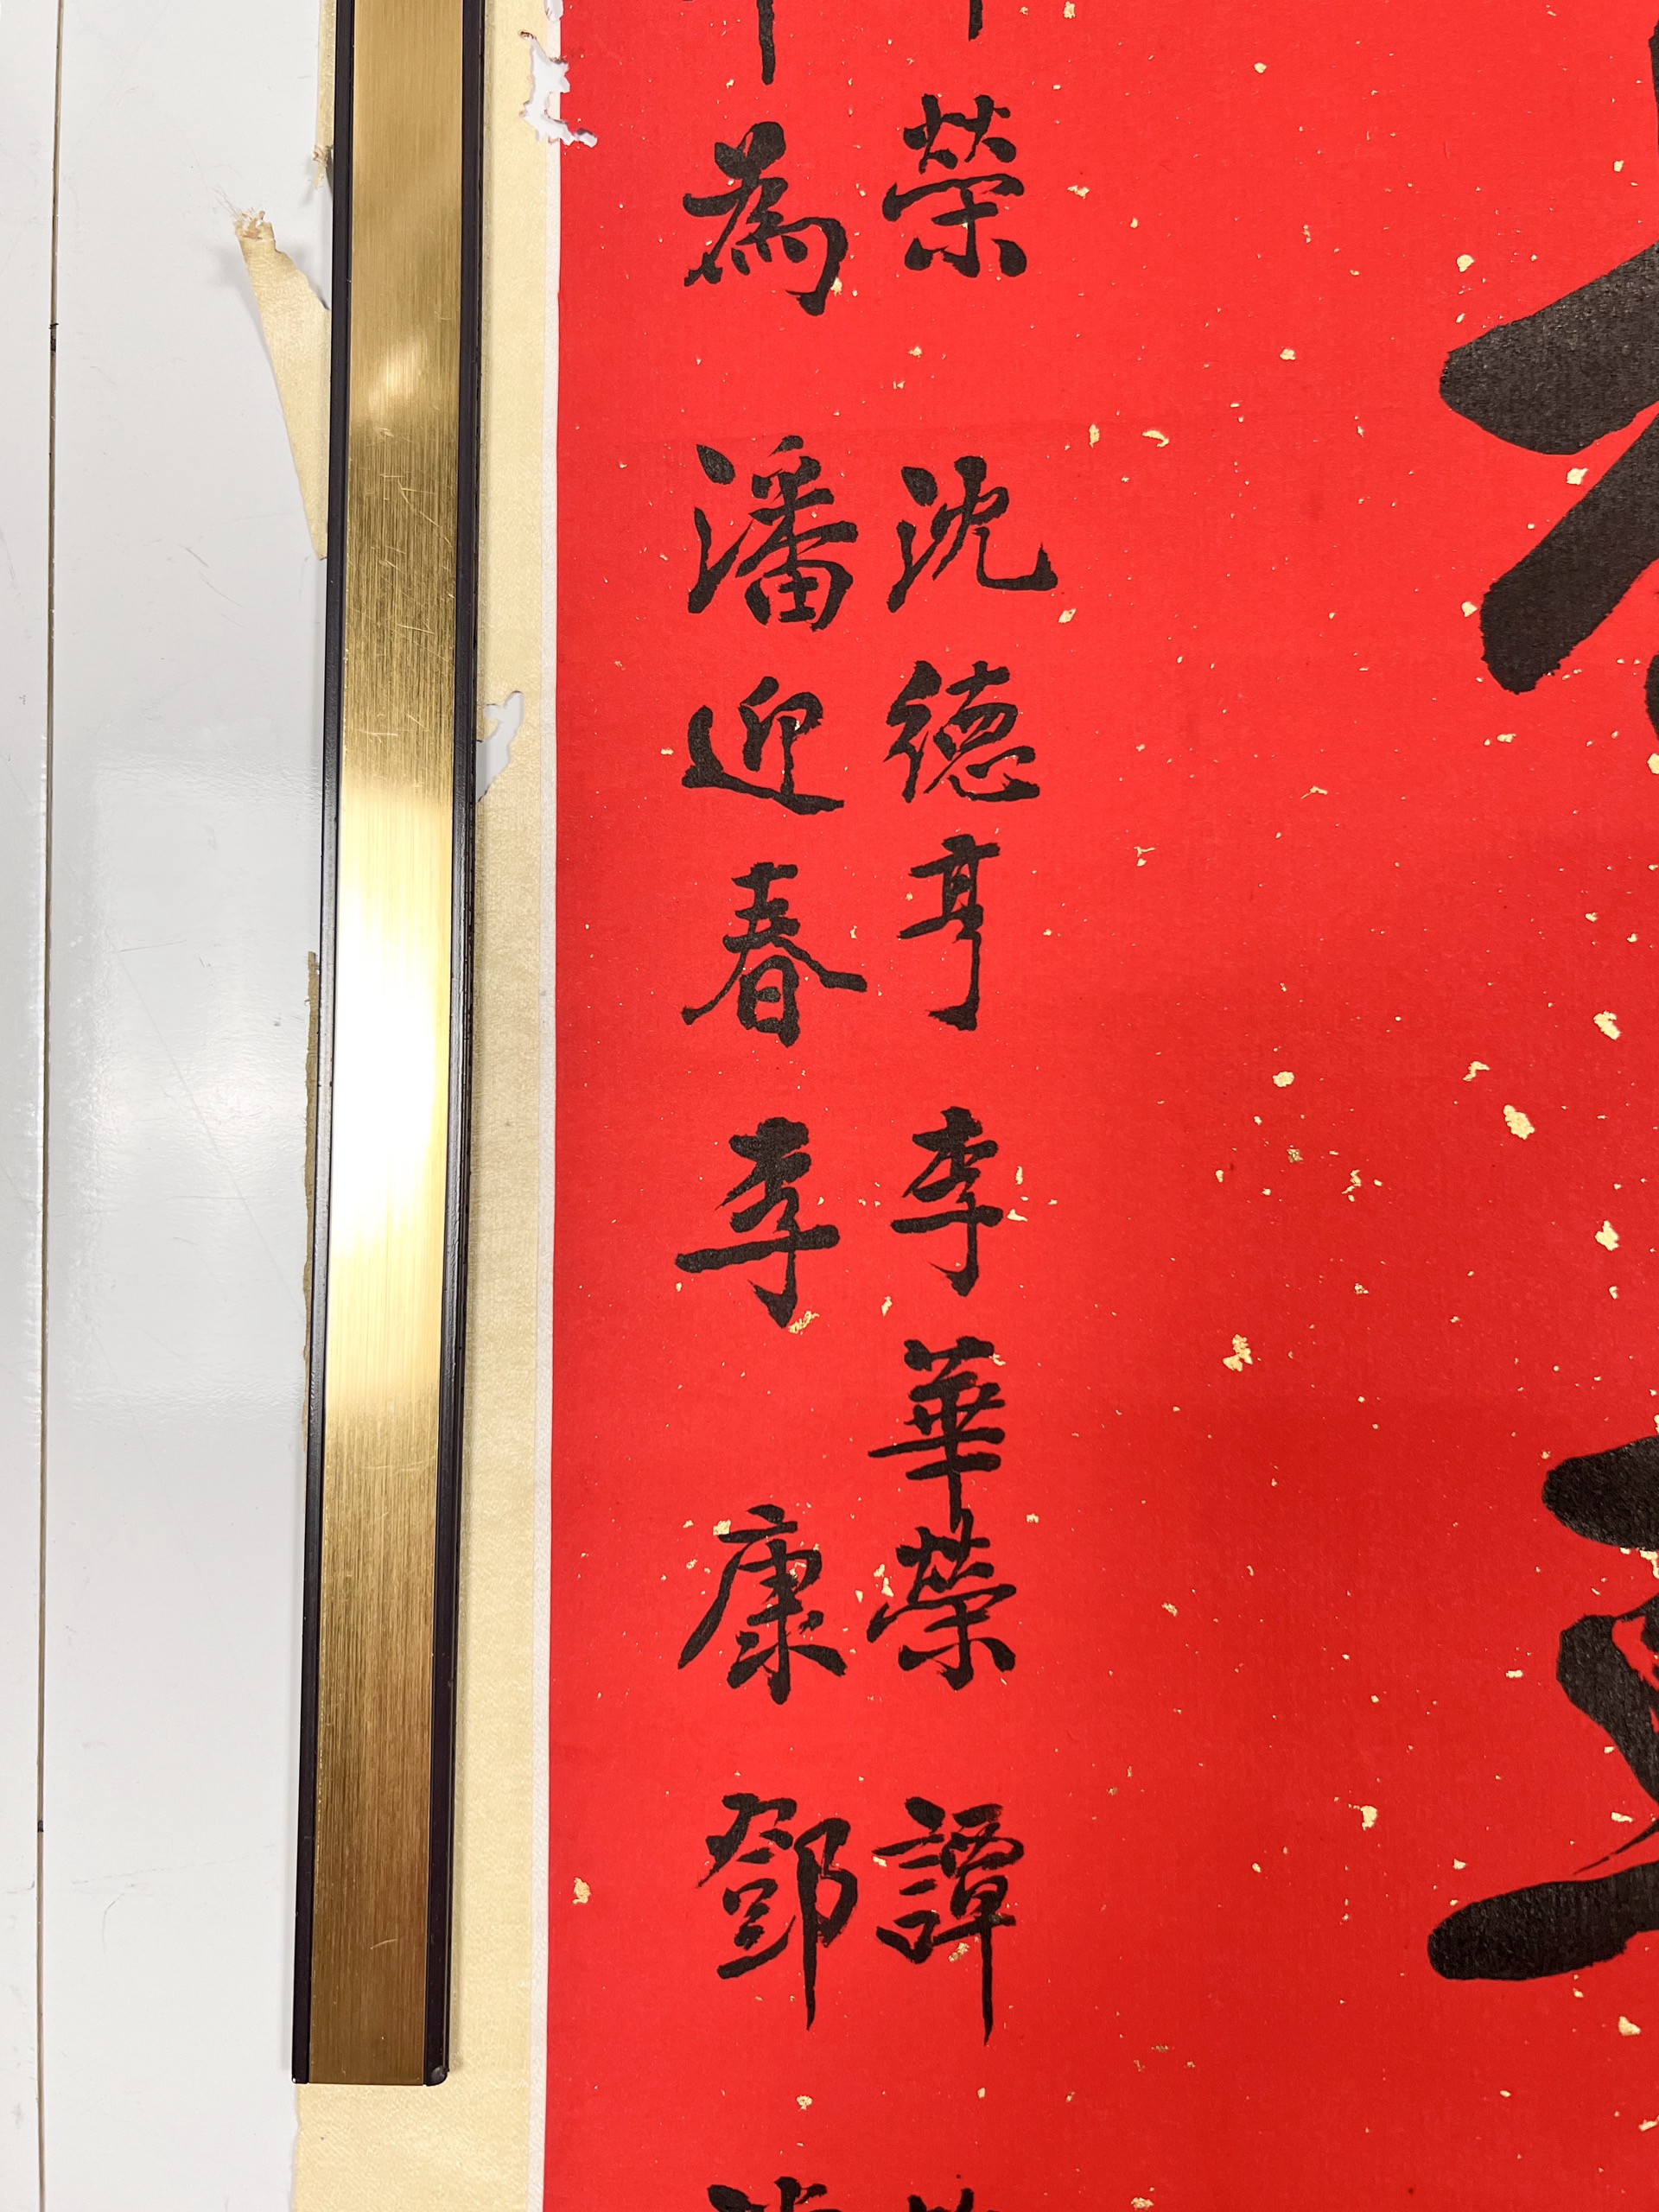 榮 沈德亨 李華榮 譚
為 潘迎春 李康 鄧